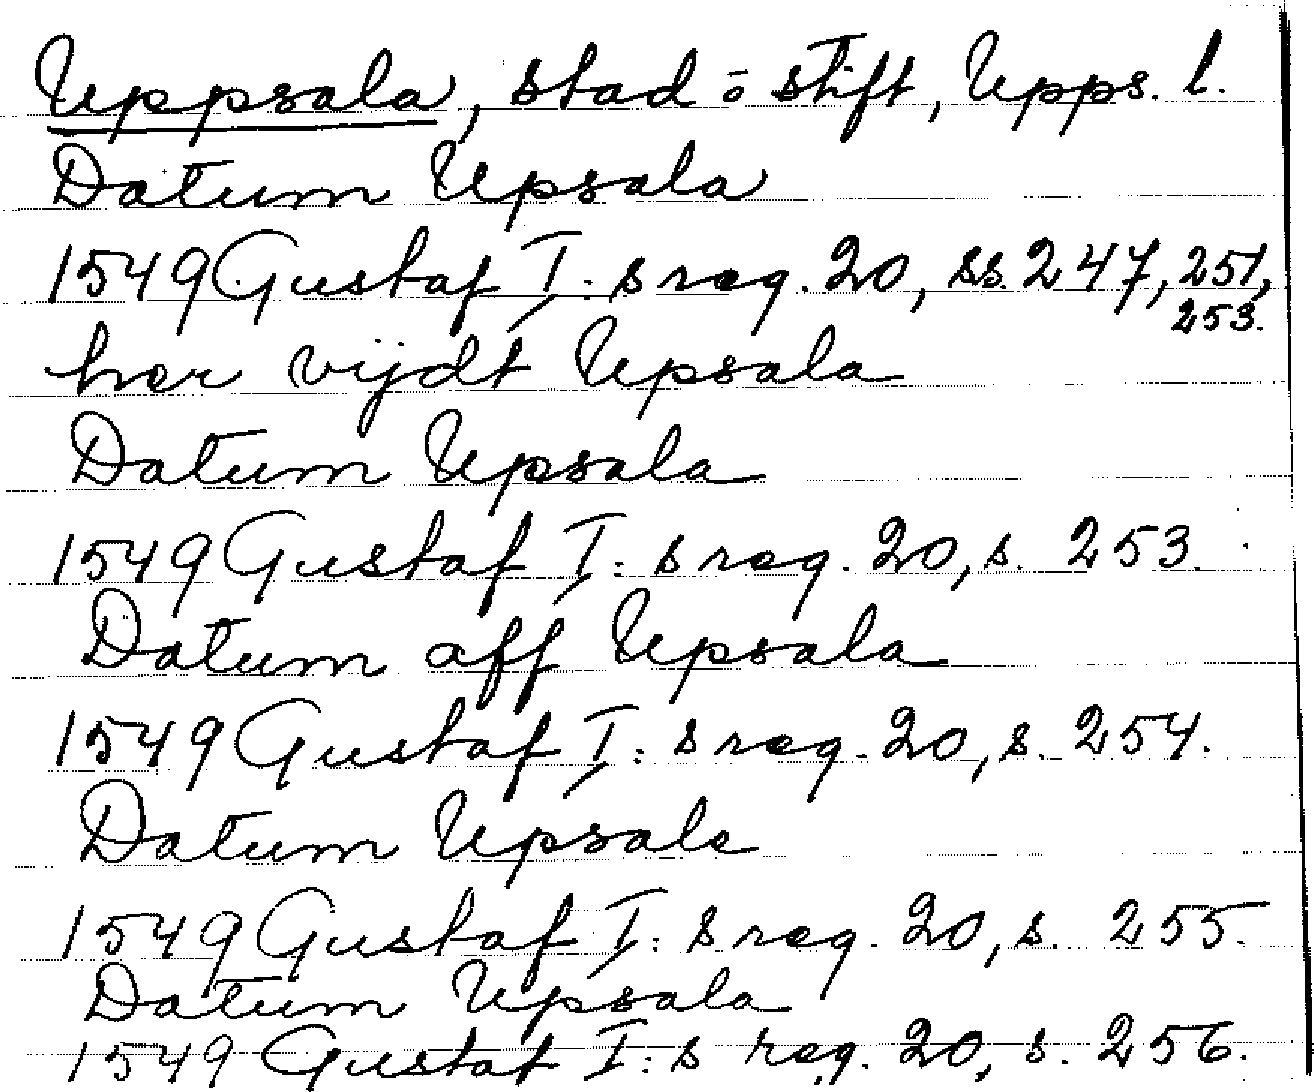 Uppsala, stad o stift, Upps. l.
Datum Upsala
1549 Gustaf I: s reg. 20, ss. 247, 251,
253.
her vijdt Upsala
Datum Upsala
1549 Gustaf I: s reg. 20, s. 253.
Datum aff Upsala
1549 Gustaf I: s reg. 20, s. 254.
Datum Upsale
1549 Gustaf I: s reg. 20, s. 255.
Datum Upsala
1549 Gustaf I: s reg. 20, s. 256.